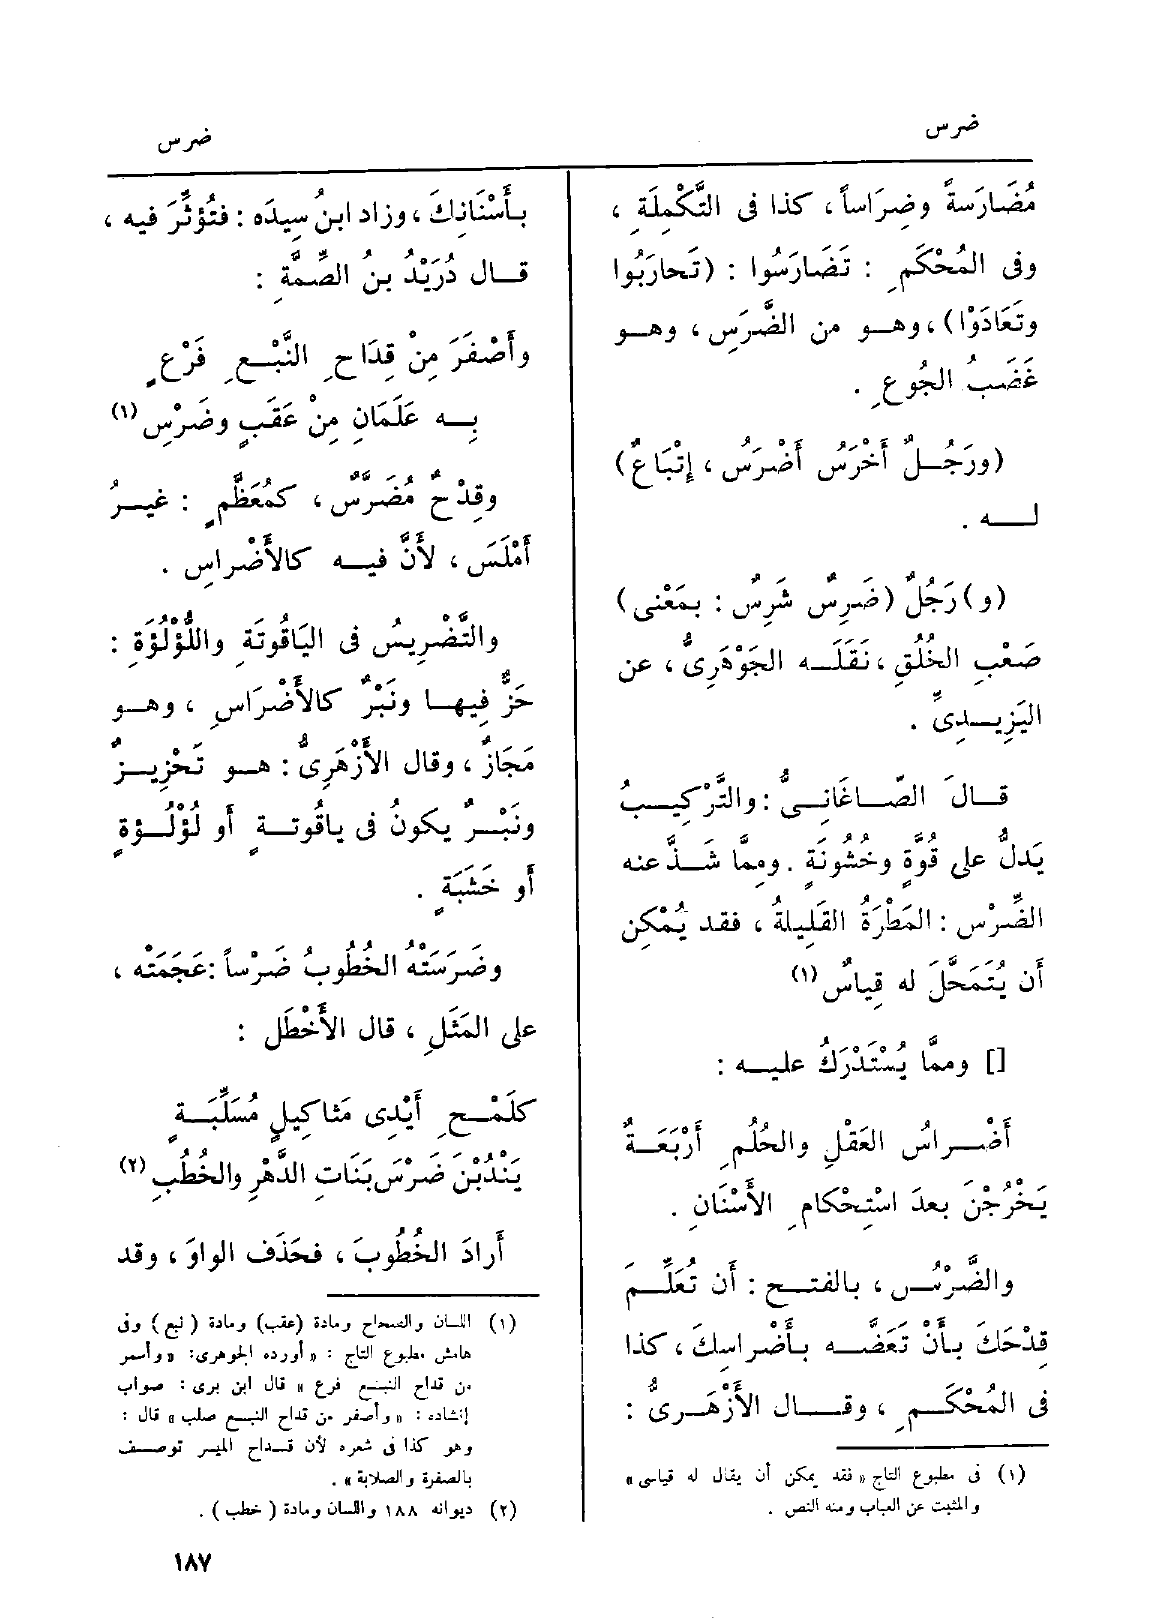 ضرس
ضرس
مُضَارَسةً وضِرَاساً، كذا فى التَّكْمِلَةِ ،
وفى المُحْكَمِ : تَضَارَسُوا : (تَحارَبُوا
وتَعَادَوْا)، وهو من الضَّرَسِ ، وهو
غَضَبُ الجُوعِ .
(ورَجُلٌ أَخْرَسُ أَضْرَسُ ، إِتْبَاعٌ)
له .
(و) رَجُلٌ (ضَرِسٌ شَرِسٌ : بمَعْنى)
صَعْبِ الخُلُقِ ، نَقَلَه الجَوْهَرِىُّ ، عن
اليَزِيدِىِّ .
قالَ الصّاغَانِىُّ : والتَّرْكِيبُ
يَدلُّ على قُوَّةٍ وخُشُونَةٍ . ومِمَّا شَذَّ عنه
الضِّرْس : المَطْرَةُ القَلِيلةُ ، فقد يُمْكِن
أن يُتَمَحَّلَ له قِياسٌ (١)
[] ومما يُسْتَدْرَكُ عليه :
أَضْراسُ العَقْلِ والحُلُمِ أَرْبَعَةٌ
يَخْرُجْنَ بعدَ اسْتِحْكامِ الأَسْنَانِ .
والضَّرْسُ ، بالفتح : أَن تُعَلِّمَ
قِدْحَكَ بأَنْ تَعَضَّه بأَضْراسِكَ ، كذا
فى المُحْكَمِ ، وقال الأَزْهَرِىُّ :
(١) فى مطبوع التاج « فقد يمكن أن يقال له قياسى »
والمثبت عن العباب ومنه النص .
بأَسْنَانِكَ ، وزاد ابنُ سِيدَه : فتُؤثِّرَ فيه ،
قال دُرَيْدُ بنُ الصِّمَّةِ :
وأَصْفَرَ مِنْ قِدَاحِ النَّبْعِ فَرْعٍ
بِه عَلَمَانِ مِنْ عَقَبٍ وضَرْسِ (١)
وقِدْحٌ مُضَرَّسٌ ، كمُعَظَّمٍ : غيرُ
أَمْلَسَ ، لأَنَّ فيه كالأَضْراسِ .
والتَّضْرِيسُ فى اليَاقُوتَةِ واللُّؤْلُؤَةِ :
حَزٌّ فِيها ونَبْرٌ كالأَضْرَاسِ ، وهو
مَجَازٌ ، وقال الأَزْهَرِىُّ : هو تَحْزِيزٌ
ونَبْرٌ يكونُ فى ياقُوتةٍ أو لُؤْلُؤةٍ
أو خَشَبَةٍ .
وضَرَسَتْهُ الخُطُوبُ ضَرْساً : عَجَمَتْه ،
على المَثَلِ ، قال الأَخْطَل :
كلَمْحِ أَيْدِى مَثاكِيلٍ مُسَلِّبَةٍ
يَنْدُبْنَ ضَرْسَ بَنَاتِ الدَّهْرِ والخُطُبِ (٢)
أرادَ الخُطُوبَ ، فحَذَف الواوَ ، وقد
(١) اللسان والصحاح ومادة (عقب) ومادة (نبع) وفى
هامش مطبوع التاج : « أورده الجوهرى: « وأسمر
من قداح النبع فرع » قال ابن برى : صواب
إنشاده : « وأصفر من قداح النبع صلب » قال :
وهو كذا فى شعره لأن قداح الميسر توصف
بالصفرة والصلابة » .
(٢) ديوانه ١٨٨ واللسان ومادة (خطب) .
١٨٧